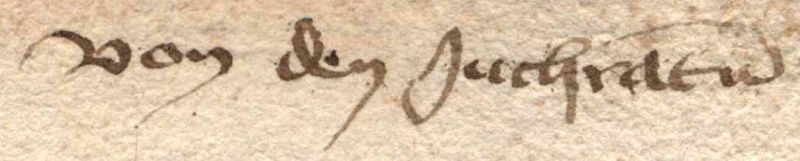 von den Juchratn